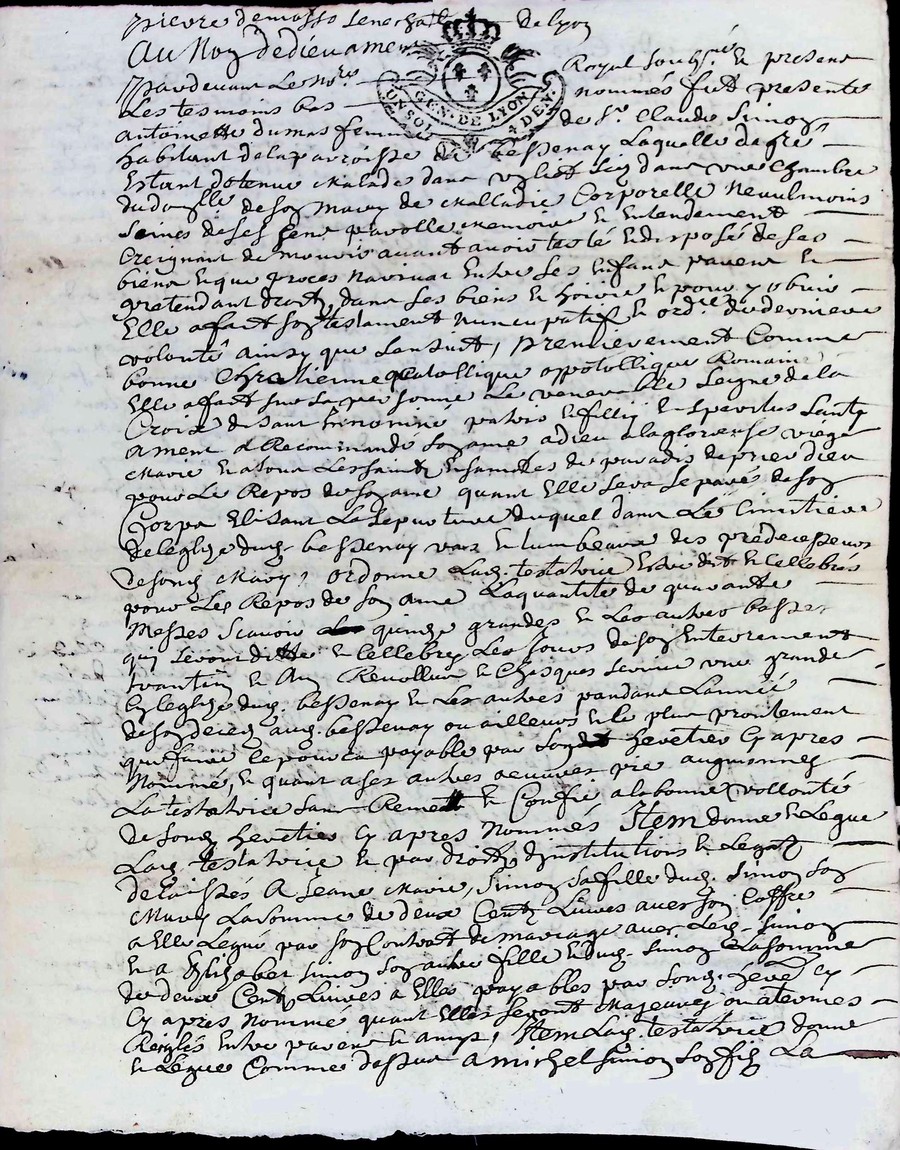 pierre demasso senechal de lyon
Au Nom de dieu amen
pardevant Le No.re Royal soubs.né Et present
Les tesmoins bas nommés fut presente
GEN. DE LYON
UN SOL 4 DEN.
antoinette dumas femme de Sr Claude Simon
habitant de la parroisse de bessenay Laquelle de gré
Estant detenue Malade dans un lict dans une Chambre
du de son Mary de Malladie Corporelle Neaulmoins
saines de ses sens parolle Memoire Et Entendement
Creignant de mourir avant avoir testé Et disposé de ses
biens Et que proces Entre ses Enfans parens Et
pretendant droits dans ses biens Et hoirie Et pour y obvier
Elle a fait son testament nuncupatif Et ord.re de derniere
volonté ainsy que sensuit, premierement Comme
bonne Chretienne Catollique appotollique Romaine
Elle a fait sur sa personne Le venerable Seigne de la
Croix disant Innomine patris Et fillij Et speritus Santy
amen a Recommandé son ame a dieu a la glorieuse vierge
Marie Et a tous Les saints Et saintes de paradis de prier dieu
pour Le Repos de son ame quant Elle sera separé de son
Corps Elisant La sepulture duquel dans Le Cimitiere
de leglize dud. bessenay vas Et tumbeaux des prédécesseurs
de sond. Mary, ordonne Lad. testatrice Estre dit Et Cellebrés
pour Les Repos de son ame La quantité de quarante
Messes scavoir quinze grandes Et Les autres basses
qui seront dittes Et Cellebrés Les Jours de son Enterrement
Et Au Revollu Et Chasques service une grande
En leglize dud. bessenay Et Les autres pandant Lannée
de son deced aud. bessenay ou ailleurs Et le plus promtement
que faire se pourra payable par son heretier Cy apres
Nommé, Et quant a ses autres oeuvres pie aumones
La testatrice sans Remet Et Confie a la bonne vollonté
de sond. heretier Cy apres Nommés, Item donne Et Legue
Lad. testatrice Et par droits dinstitutions Et Legat
delaissés A Jeane Marie Simon sa fille dud. Simon son
Mary La somme de deux Cents Livres avec son Coffre
a Elle Legué par son Contrat de mariage avec Led. Simon
Et a Elizabet Simon son autre fille Et dud. Simon La somme
de deux Cents Livres a Elles payables par sond. heret. Cy
Cy apres Nommé quant Elles seront Majeures ou a termes
Reglés Entre parens Et amys, Item Lad. testatrice donne
Et Legue Comme dessus a michel Simon son fils La